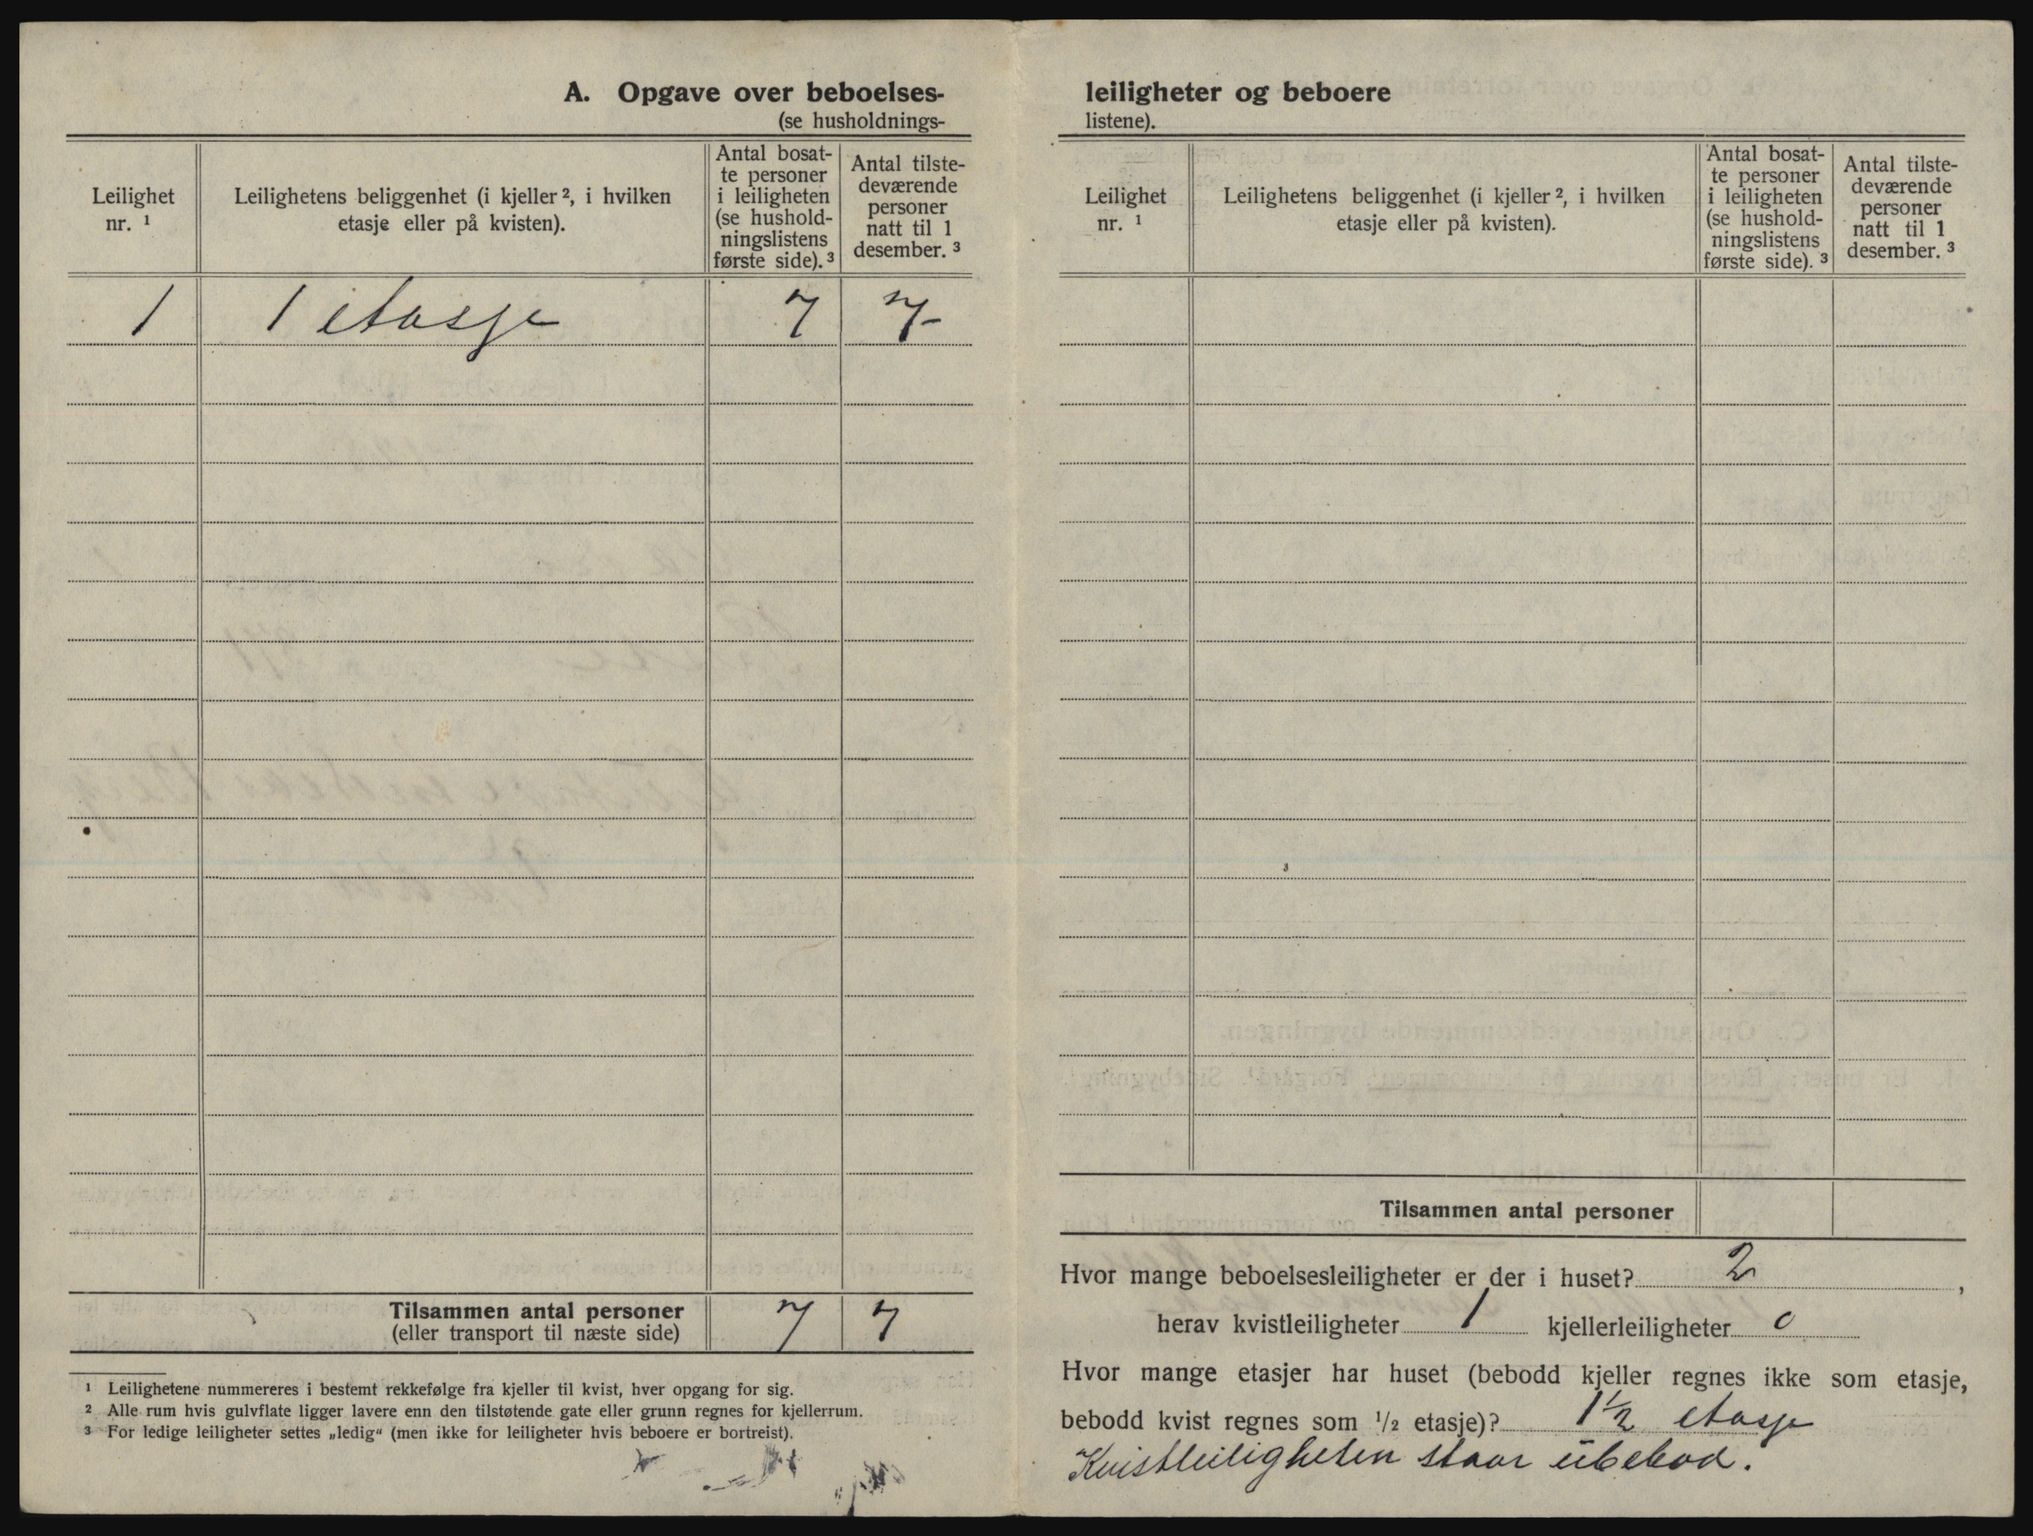 A. Opgave over beboelses-
(se husholdnings-
Leilighet
nr. ¹
Leilighetens beliggenhet (i kjeller ², i hvilken
etasje eller på kvisten).
Antal bosat-
te personer
i leiligheten
(se hushold-
ningslistens
første side). ³
Antal tilste-
deværende
personer
natt til 1
desember. ³
1 1 etasje 7 7
Tilsammen antal personer 7 7
(eller transport til næste side)
¹ Leilighetene nummereres i bestemt rekkefølge fra kjeller til kvist, hver opgang for sig.
² Alle rum hvis gulvflate ligger lavere enn den tilstøtende gate eller grunn regnes for kjellerrum.
³ For ledige leiligheter settes „ledig“ (men ikke for leiligheter hvis beboere er bortreist).
leiligheter og beboere
listene).
Leilighet
nr. ¹
Leilighetens beliggenhet (i kjeller ², i hvilken
etasje eller på kvisten).
Antal bosat-
te personer
i leiligheten
(se hushold-
ningslistens
første side). ³
Antal tilste-
deværende
personer
natt til 1
desember. ³
Tilsammen antal personer
Hvor mange beboelsesleiligheter er der i huset? 2,
herav kvistleiligheter 1 kjellerleiligheter 0
Hvor mange etasjer har huset (bebodd kjeller regnes ikke som etasje,
bebodd kvist regnes som ½ etasje)? 1½ etasje
Kvistleiligheten staar übebod.